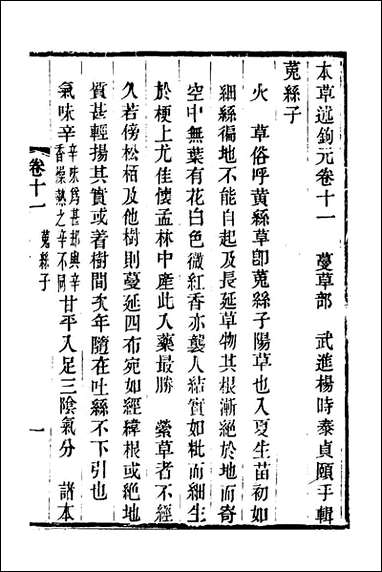 本草述鉤元卷十一　蔓草部　武進楊時泰貞頤手輯
菟絲子
火　草俗呼黃絲草卽菟絲子陽草也入夏生苗初如
細絲徧地不能自起及長延草物其根漸絕於地而寄
空中無葉有花白色微紅香亦襲人結實如粃而細生
於梗上尤佳懷孟林中產此入藥最勝　縈草者不經
久若傍松栢及他樹則蔓延四布宛如經緯根或絕地
質甚輕揚其實或著樹間次年隨在吐絲不下引也
氣味辛辛味爲甚却與辛香燥熱之辛不同甘平入足三陰氣分　諸本
卷十一　菟絲子　一